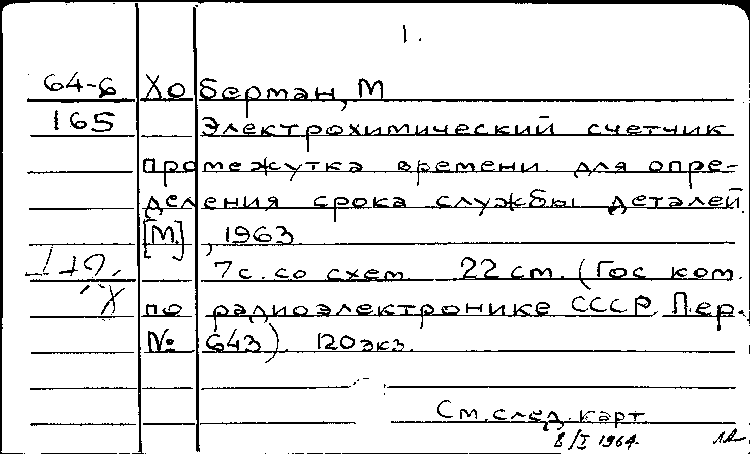 1.
64-6 Хо Берман, М
165 Электрохимический счетчик
промежутка времени для опре-
деления срока службы деталей.
[М.], 1963
7 с. со схем. 22 см. (Гос ком.
по радиоэлектронике СССР. Пер.
№ 643). 120 экз.
См. след. карт
8/I 1964.